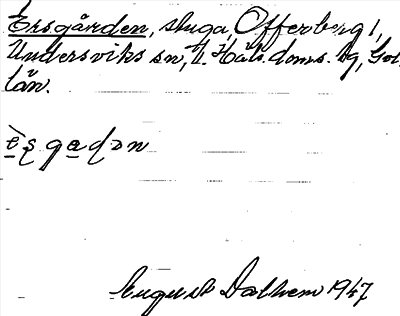 Ersgården, stuga, Offerberg 1,
Undersviks sn, V. Häls. doms. bg, Gol.
län.
ę̀ʂgaɖən
August Dalhem 1947